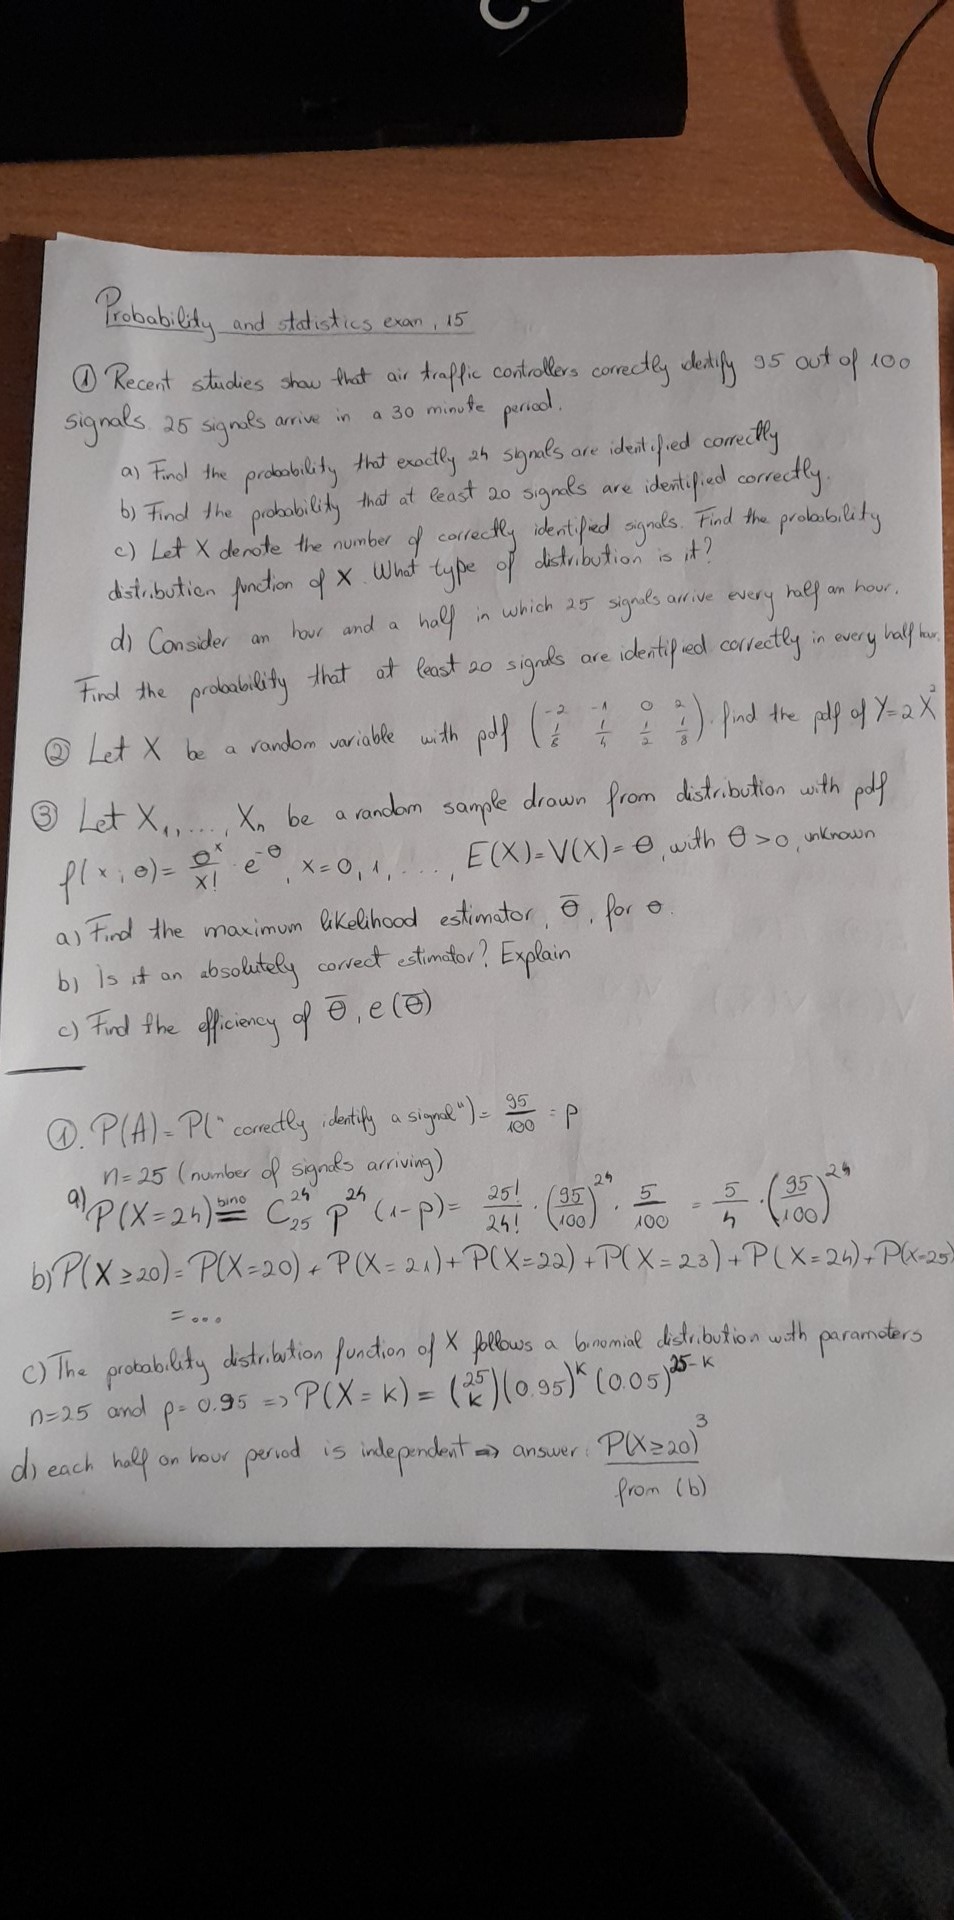 Probability and statistics exam, 15
① Recent studies show that air traffic controllers correctly identify 95 out of 100
signals. 25 signals arrive in a 30 minute period.
a) Find the probability that exactly 24 signals are identified correctly
b) Find the probability that at least 20 signals are identified correctly.
c) Let X denote the number of correctly identified signals. Find the probability
distribution function of X. What type of distribution is it?
d) Consider an hour and a half in which 25 signals arrive every half an hour.
Find the probability that at least 20 signals are identified correctly in every half hour.
② Let X be a random variable with pdf (-2 -1 0 2 / 1/8 1/4 1/2 1/8). find the pdf of Y=2X²
③ Let X₁, ..., Xₙ be a random sample drawn from distribution with pdf
f(x; θ) = θˣ/x! · e^-θ, x=0, 1, ..., E(X)=V(X)=θ, with θ>0, unknown
a) Find the maximum likelihood estimator, θ̅, for θ.
b) Is it an absolutely correct estimator? Explain
c) Find the efficiency of θ̅, e(θ̅)
①. P(A) = P("correctly identify a signal") = 95/100 = p
n=25 (number of signals arriving)
a) P(X=24) bino= C₂₅²⁴ p²⁴ (1-p) = 25!/24! · (95/100)²⁴ · 5/100 = 5/4 · (95/100)²⁴
b) P(X≥20) = P(X=20) + P(X=21) + P(X=22) + P(X=23) + P(X=24) + P(X=25)
= ...
c) The probability distribution function of X follows a binomial distribution with parameters
n=25 and p=0.95 => P(X=k) = (25 k)(0.95)^k (0.05)^25-k
d) each half an hour period is independent => answer: P(X≥20)³
from (b)